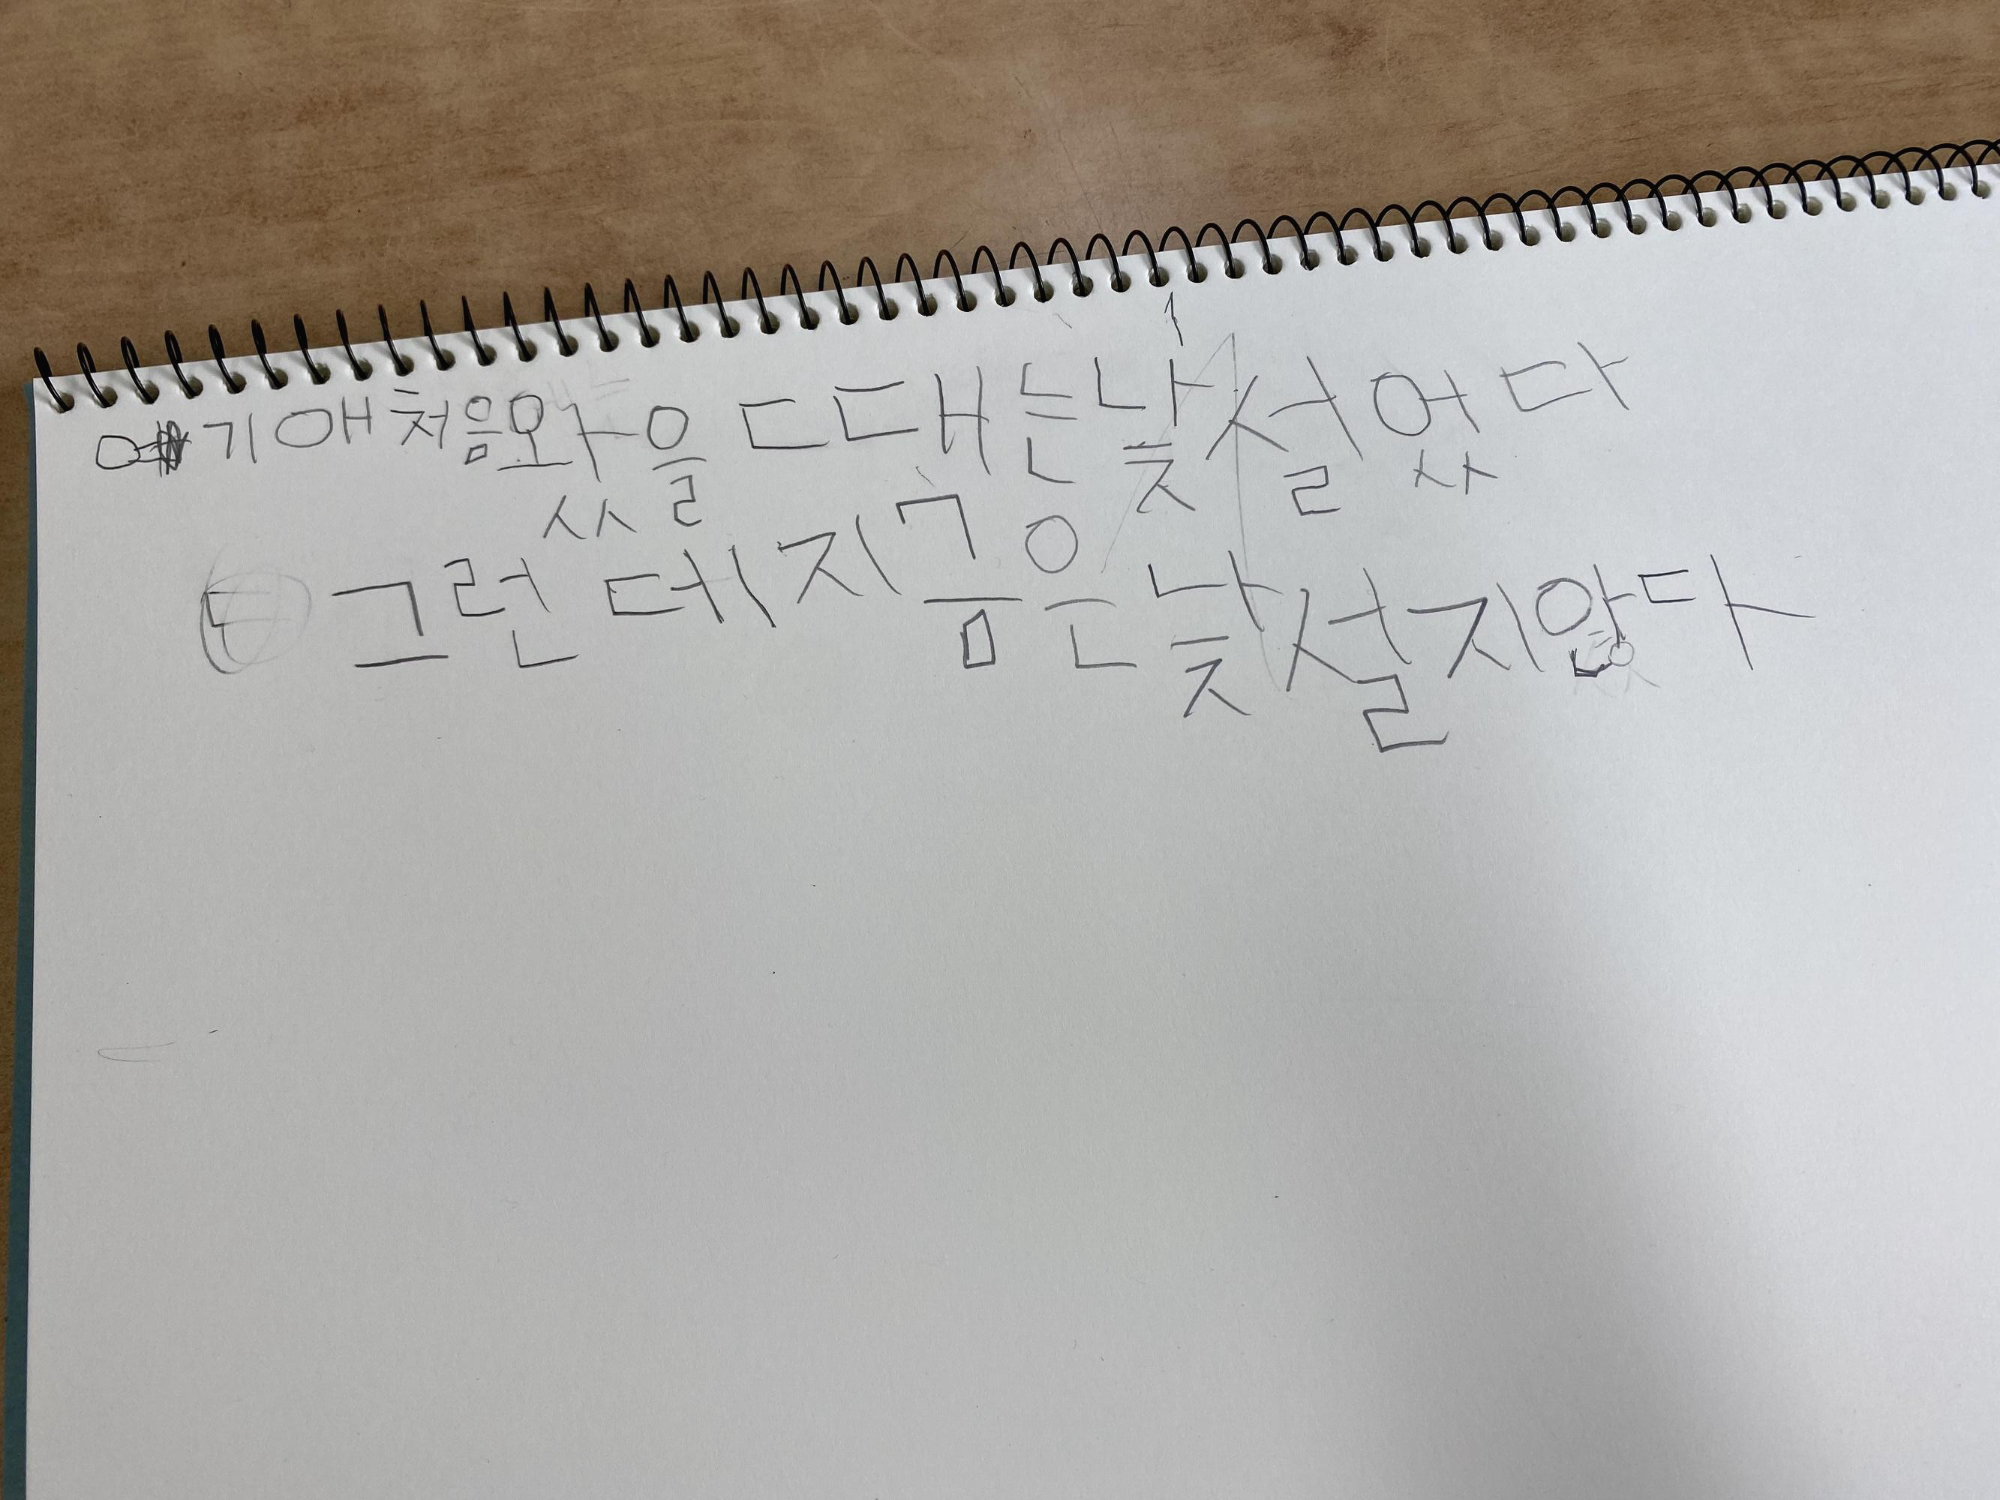 여기애처음왔을때는낯설었다
그런데지금은낯설지않다